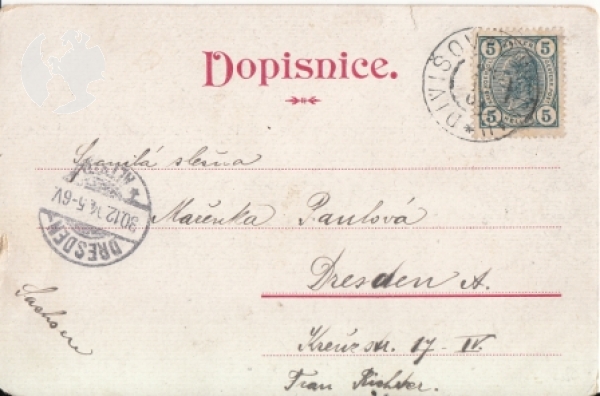 Dopisnice.
5 5
5 5
DIVIŠOV
Spanilá slečna
Mařenka Paulová
Dresden A.
Kreuzstr. 17 - IV.
Frau Richter.
Sachsen
DRESDEN
ALTST.
30.12. 5-6V.